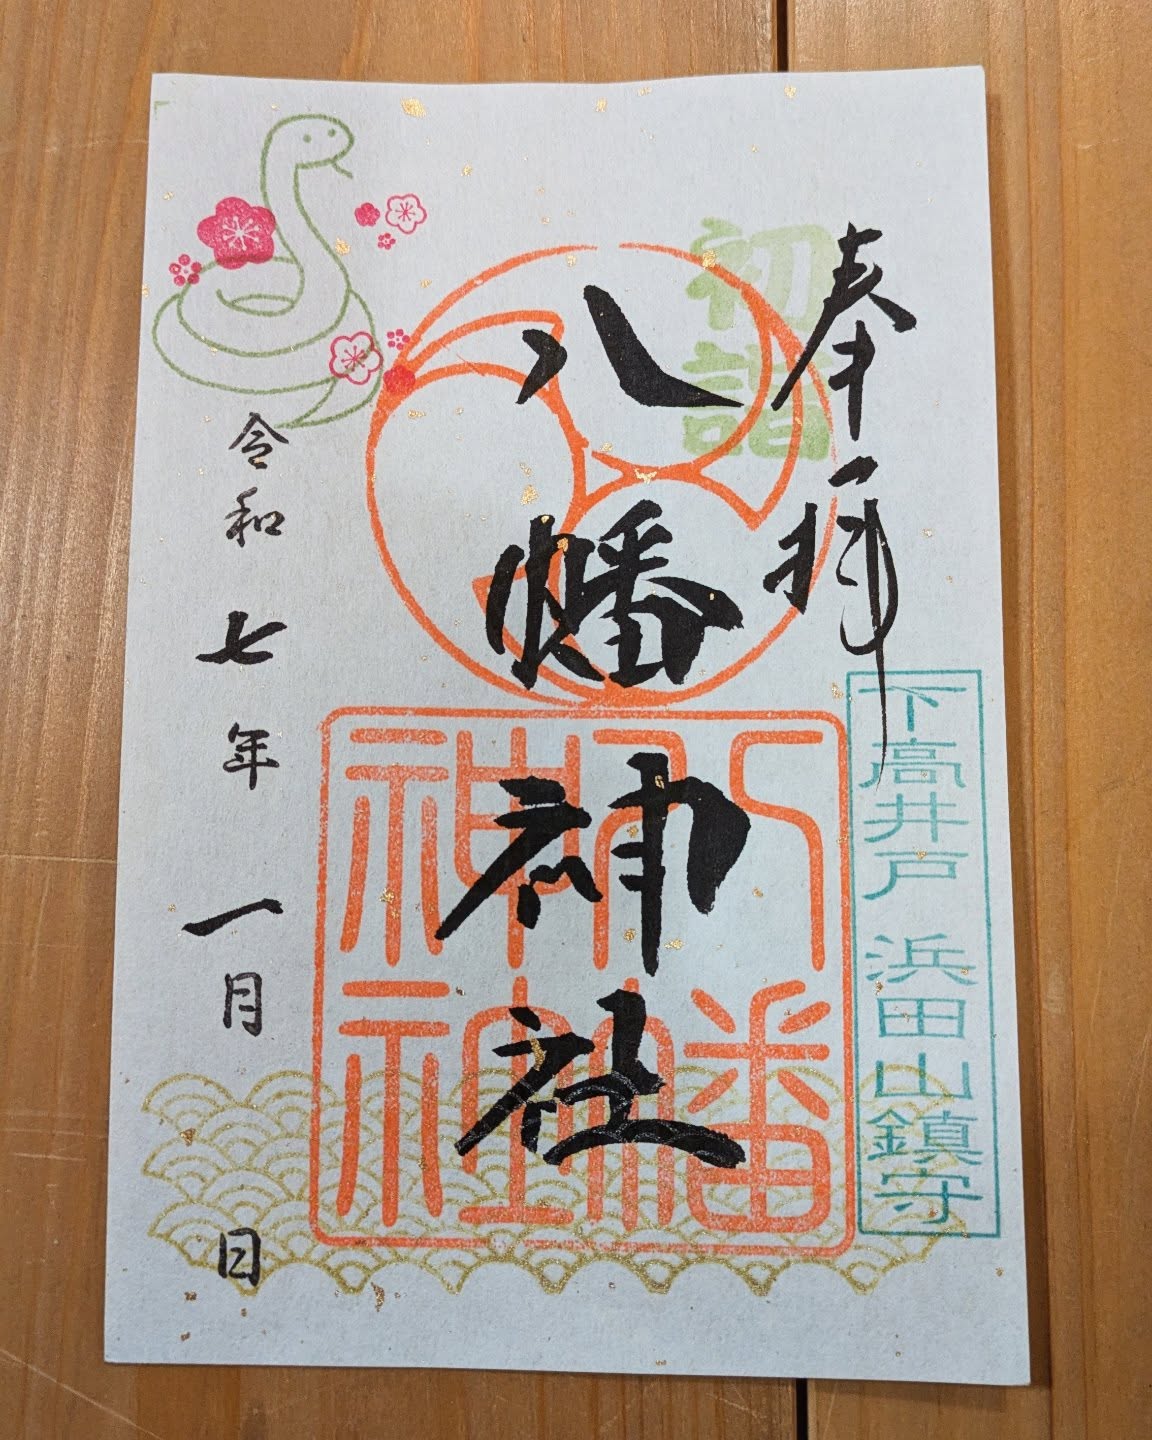 奉拝
初詣
下高井戸 浜田山鎮守
八幡神社
八幡
神社
令和七年一月 日